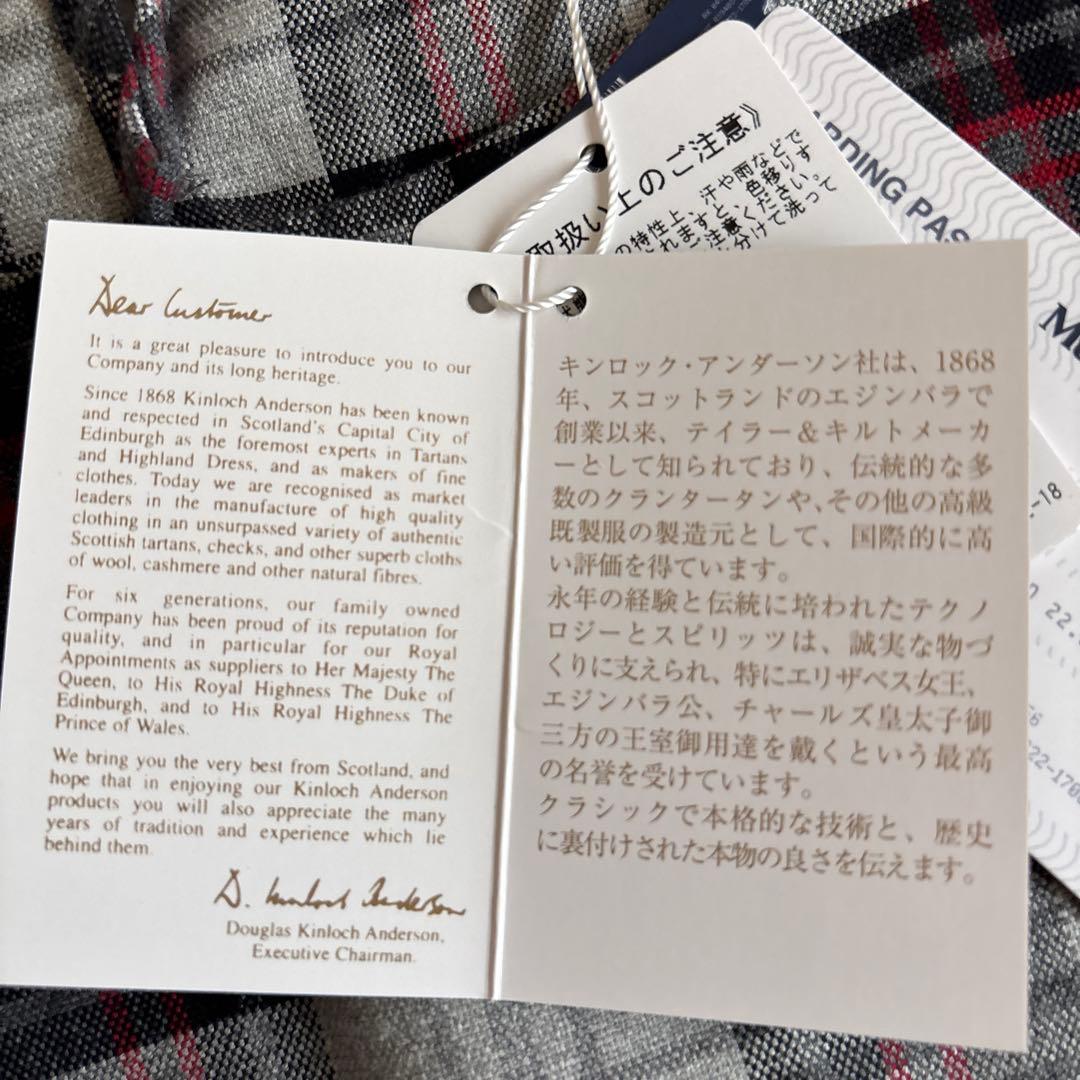 Dear Customer
It is a great pleasure to introduce you to our
Company and its long heritage.
Since 1868 Kinloch Anderson has been known
and respected in Scotland's Capital City of
Edinburgh as the foremost experts in Tartans
and Highland Dress, and as makers of fine
clothes. Today we are recognised as market
leaders in the manufacture of high quality
clothing in an unsurpassed variety of authentic
Scottish tartans, checks, and other superb cloths
of wool, cashmere and other natural fibres.
For six generations, our family owned
Company has been proud of its reputation for
quality, and in particular for our Royal
Appointments as suppliers to Her Majesty The
Queen, to His Royal Highness The Duke of
Edinburgh, and to His Royal Highness The
Prince of Wales.
We bring you the very best from Scotland, and
hope that in enjoying our Kinloch Anderson
products you will also appreciate the many
years of tradition and experience which lie
behind them.
D. Kinloch Anderson
Douglas Kinloch Anderson,
Executive Chairman.
キンロック・アンダーソン社は、1868
年、スコットランドのエジンバラで
創業以来、テイラー&キルトメーカ
ーとして知られており、伝統的な多
数のクランタータンや、その他の高級
既製服の製造元として、国際的に高
い評価を得ています。
永年の経験と伝統に培われたテクノ
ロジーとスピリッツは、誠実な物づ
くりに支えられ、特にエリザベス女王、
エジンバラ公、チャールズ皇太子御
三方の王室御用達を戴くという最高
の名誉を受けています。
クラシックで本格的な技術と、歴史
に裏付けされた本物の良さを伝えます。
取扱い上のご注意》
の特性上、汗や雨など
です
ARDING PAS
-18
22.